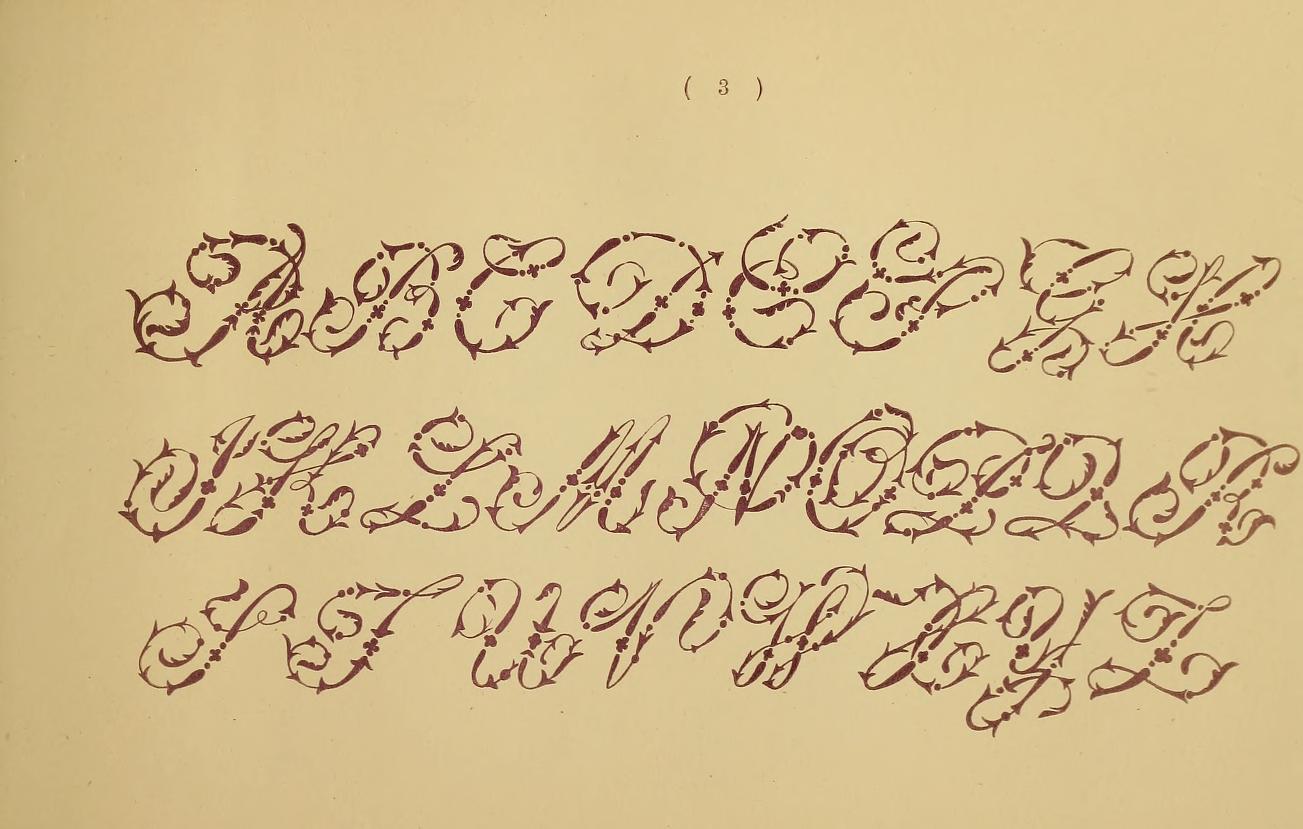 ( 3 )
A B C D E F G H
K L M N O P Q R
S T U V W X Y Z